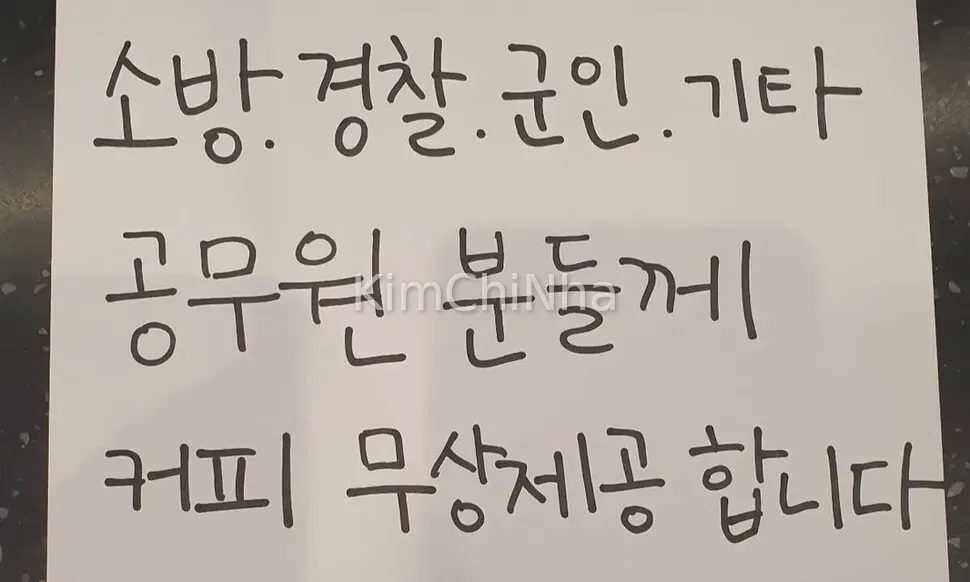 소방.경찰.군인.기타
공무원 분들께
KimChiNha
커피 무상제공 합니다